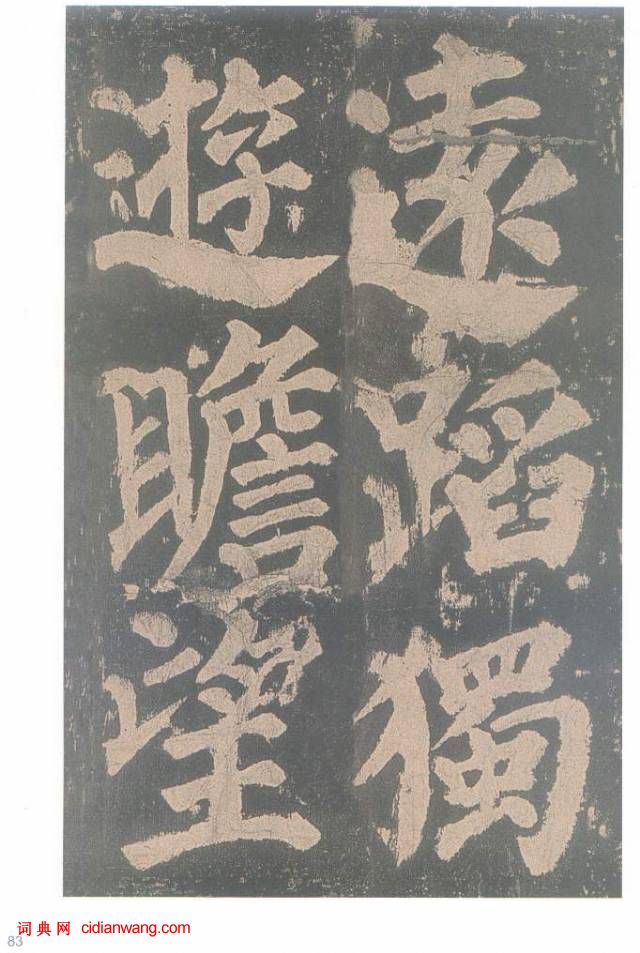 遠蹈獨
遊瞻望
词典网 cidianwang.com
83